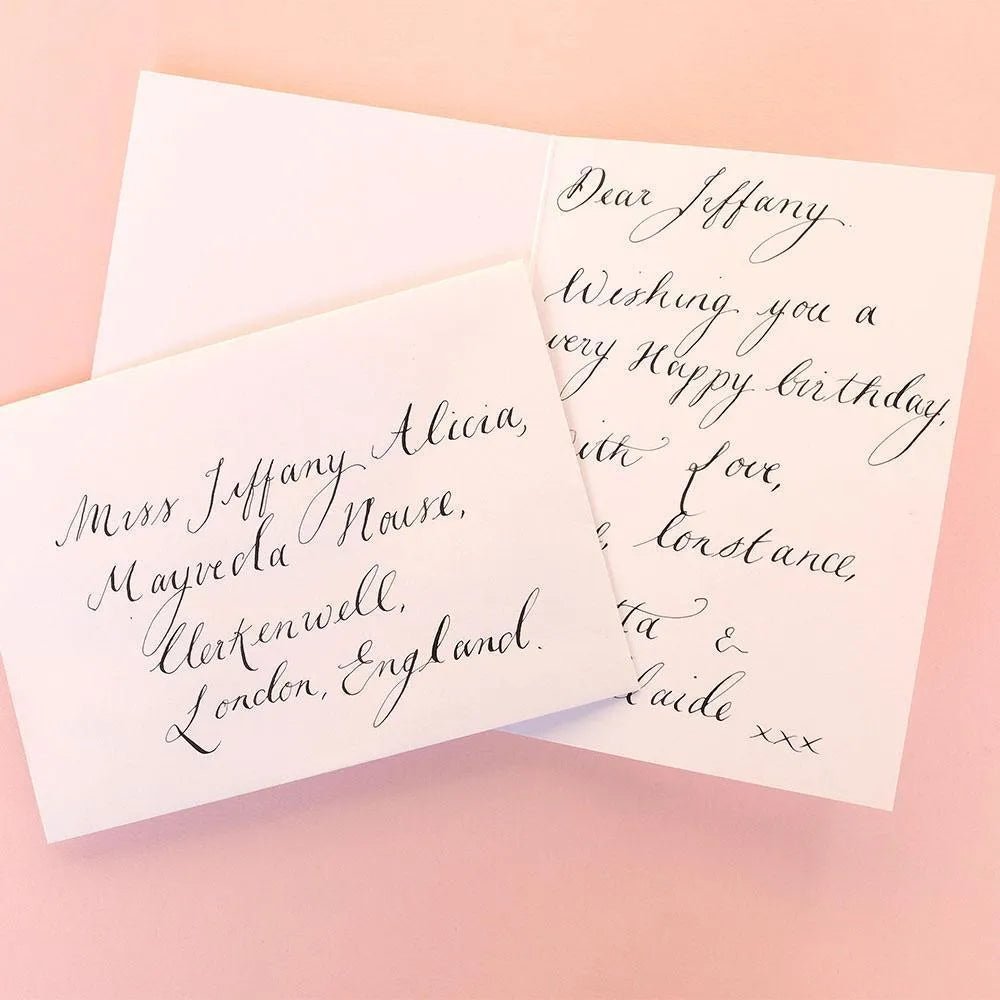 Miss Tiffany Alicia,
Mayveda House,
Clerkenwell,
London, England.
Dear Tiffany
Wishing you a
very Happy birthday,
ith Love,
Constance,
tta &
laide xxx